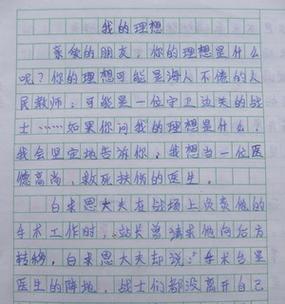 我的理想
亲爱的朋友，你的理想是什么
呢？你的理想可能是诲人不倦的人
民教师；可能是一位守卫边关的战
士……如果你问我的理想是什么，
我会坚定地告诉你，我想当一位医
德高尚、救死扶伤的医生。
白求恩大夫在战场上负责他的
手术工作时，站长曾请求他向后方
转移，白求恩大夫却说：“手术台是
医生的阵地，战士们都没离开自己